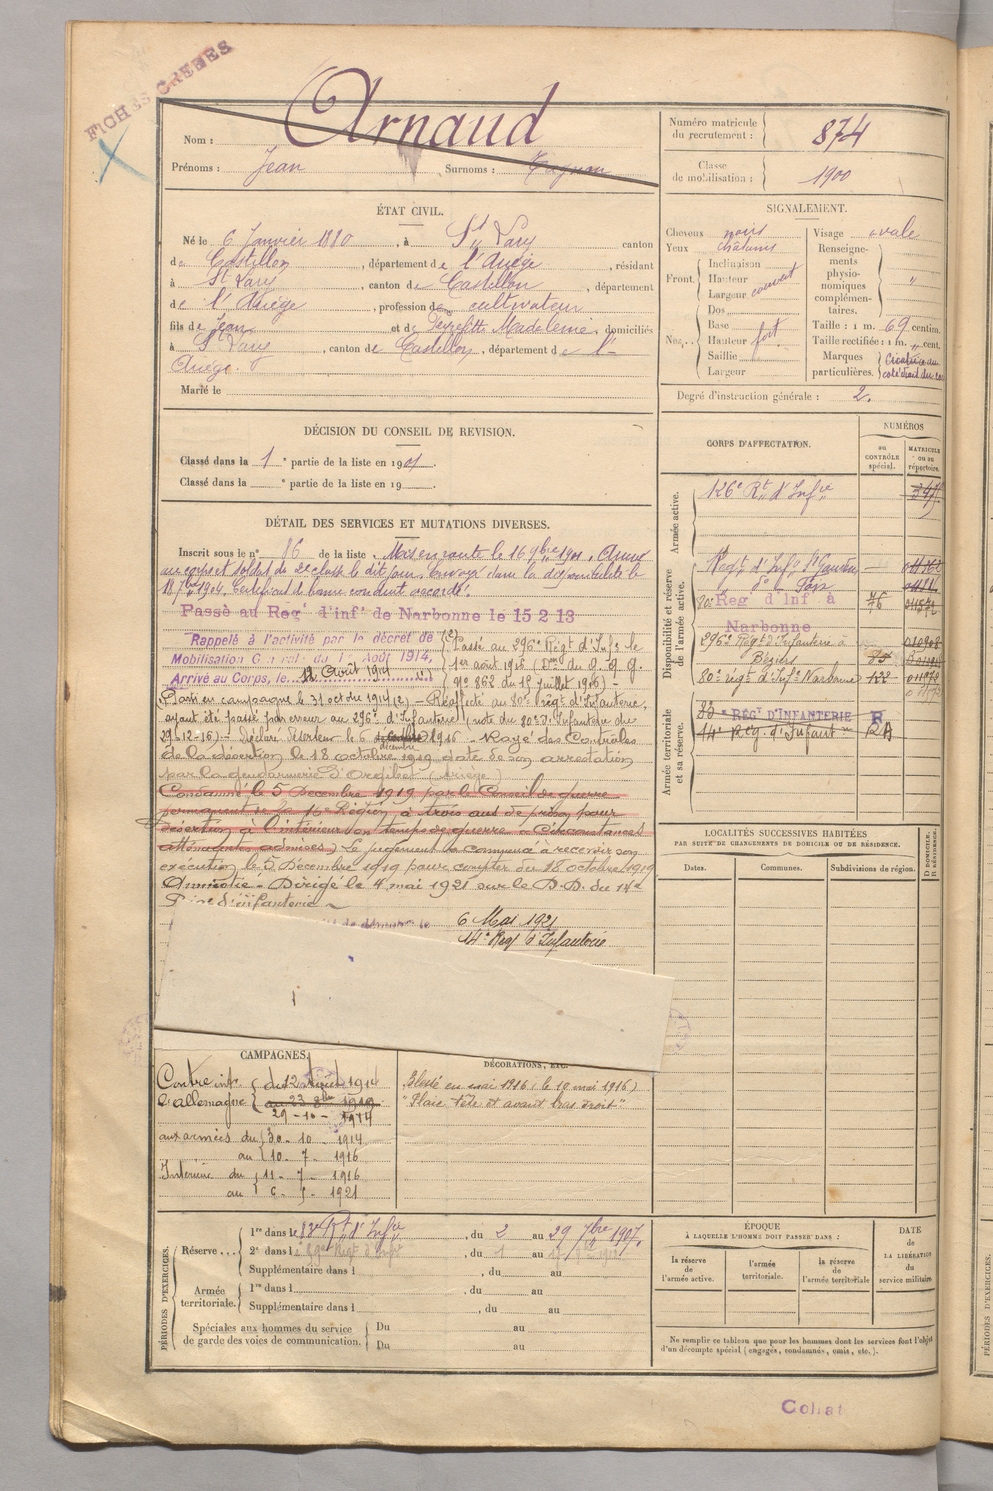 FICHES CREEES
Nom : Arnaud
Prénoms : Jean Surnoms :
Numéro matricule du recrutement : 874
Classe de mobilisation : 1900
ÉTAT CIVIL.
Né le 6 Janvier 1880, à St Lary canton
de Castillon, département de l'Ariège, résidant
à St Lary, canton de Castillon, département
de l'Ariège, profession de cultivateur
fils de Jean et de Peyrefitte Madeleine, domiciliés
à St Lary, canton de Castillon, département de l'-
Ariège.
Marié le
SIGNALEMENT.
Cheveux noirs
Yeux châtains
Front Inclinaison
Hauteur
Largeur couvert
Nez Dos
Base
Hauteur fort
Saillie
Largeur
Visage ovale
Renseignements physionomiques complémentaires. "
Taille : 1 m. 69 centim.
Taille rectifiée : 1 m. " cent.
Marques particulières. Cicatrice au
coté droit du cou
Degré d'instruction générale : 2.
DÉCISION DU CONSEIL DE REVISION.
Classé dans la 1e partie de la liste en 1901.
Classé dans la e partie de la liste en 19
DÉTAIL DES SERVICES ET MUTATIONS DIVERSES.
Inscrit sous le n° 86 de la liste. Mis en route le 16 9bre 1901. Arrivé
au corps et soldat de 2e classe le dit jour. Envoyé dans la disponibilité le
18 7bre 1904. Certificat de bonne conduite accordé.
Passé au Regt d'inf° de Narbonne le 15 2 13
Rappelé à l'activité par le décret de
Mobilisation Générale du 1er Août 1914,
Arrivé au Corps, le 12 Août 1914
(2) Passé au 296e Régt d'Infie le
1er août 1916 (Don du G. Q. G.
n° 862 du 15 Juillet 1916) -
Parti en campagne le 31 oct du 1914 (2) - Réaffecté au 80e Régt d'Infanterie,
ayant été passé par erreur au 296e d'Infanterie (note du 80e d'Infanterie du
29-12-16) - Déclaré déserteur le 6 décembre 1916 - Rayé des Contrôles
de la désertion le 18 octobre 1919 date de son arrestation
par la gendarmerie d'Orgibet (Ariège)
Condamné le 5 Décembre 1919 par le Conseil de guerre
permanent de la 16e Région à trois ans de prison pour
désertion à l'intérieur en temps de guerre (Circonstances
atténuantes admises) Le jugement a commencé à recevoir son
exécution le 5 Décembre 1919 pour compter du 18 octobre 1919
Amnistié - Dirigé le 4 mai 1921 sur le D.D. du 14e
Régt d'infanterie
6 Mai 1921
14e Régt d'Infanterie
CORPS D'AFFECTATION.
NUMÉROS
au CONTRÔLE spécial.
MATRICULE ou au répertoire.
Armée active.
126e Rt d'Infie
Disponibilité et réserve de l'armée active.
Regt d'Infie St Gaudens
do Foix
80e Reg d'Inf à 76
Narbonne
296e Régt d'Infanterie à
Béziers
80e régt d'Infie Narbonne 122
Armée territoriale et sa réserve.
83e REGT D'INFANTERIE R
14e Rég. d'Infantie RA
LOCALITÉS SUCCESSIVES HABITÉES
PAR SUITE DE CHANGEMENTS DE DOMICILE OU DE RÉSIDENCE.
Dates. Communes. Subdivisions de région. D DOMICILE. R RÉSIDENCE.
CAMPAGNES.
Contre { du 12 août 1914
l'allemagne { au 23 8bre 1919
29 - 10 - 1914
aux armées du 30 - 10 - 1914
au 10 - 7 - 1916
Intérieur du 11 - 7 - 1916
au 6 - 5 - 1921
DÉCORATIONS, ETC.
Blessé en mai 1916 (le 10 mai 1916)
"Plaie tête et avant bras droit".
PÉRIODES D'EXERCICES.
Réserve... 1re dans le 83e Rt d'Infie, du 2 au 29 7bre 1907.
2e dans l, du 1 au
Supplémentaire dans l, du au
Armée territoriale. 1re dans l, du au
Supplémentaire dans l, du au
Spéciales aux hommes du service de garde des voies de communication. Du au
Du au
ÉPOQUE
À LAQUELLE L'HOMME DOIT PASSER DANS :
la réserve de l'armée active.
l'armée territoriale.
la réserve de l'armée territoriale
DATE de LA LIBÉRATION du service militaire.
Ne remplir ce tableau que pour les hommes dont les services font l'objet
d'un décompte spécial (engagés, condamnés, omis, etc.).
PÉRIODES D'EXERCICES.